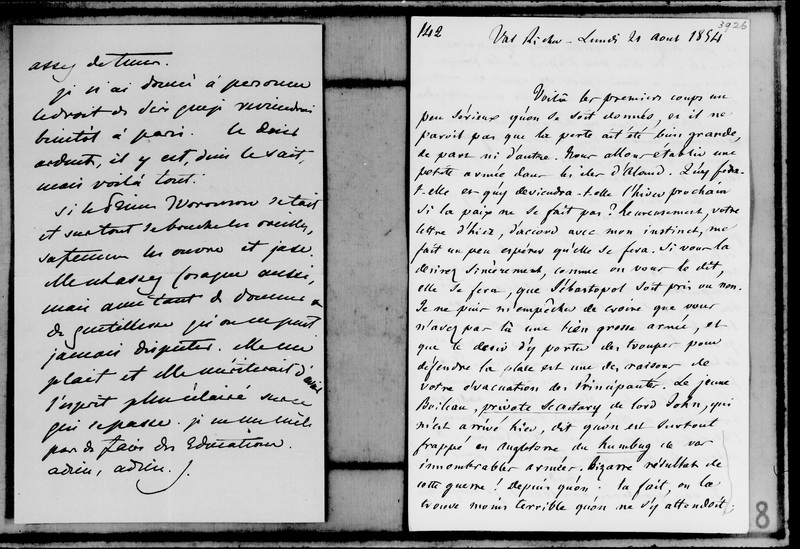 assez de tems.
je n'ai donné à personne
le droit de dire que je reviendrai
bientôt à paris. le désir
ardent, il y est, dieu le sait,
mais voilà tout.
si le Prince Woronzow se tait
et surtout se bouche les oreilles,
sa femme les ouvre et jase.
Elle est assez Cosaque aussi,
mais avec tant de douceur &
de gentillesse qu'on ne peut
jamais disputer. Elle me
plait et Elle mériterait d'avoir
l'esprit plus éclairé sur ce
qui se passe. je ne me mêle
pas de faire des Educations.
adieu, adieu. J.
142
3926
Val Richer - Lundi 21 aout 1854
Voilà les premiers coups un
peu sérieux qu'on se soit donnés, et il ne
paroit pas que la perte ait été bien grande,
de part ni d'autre. Nous allons établir une
petite armée dans les iles d'Aland. Qu'y fera-
t-elle et qu'y deviendra-t-elle l'hiver prochain
si la paix ne se fait pas ? heureusement, votre
lettre d'hier, d'accord avec mon instinct, me
fait un peu espérer qu'elle se fera. Si vous la
desirez sincèrement, comme on vous le dit,
elle se fera, que Sébastopol soit pris ou non.
Je ne puis m'empêcher de croire que vous
n'avez pas là une bien grosse armée, et
que le desir d'y porter des troupes pour
défendre la place est une des raisons de
votre évacuation des Principautés. Le jeune
Boileau, private secretary de lord John, qui
m'est arrivé hier, dit qu'on est surtout
frappé en Angleterre du humbug de vos
innombrables armées. Bizarre résultat de
cette guerre ! depuis qu'on la fait, on la
trouve moins terrible qu'on ne s'y attendoit ;
8